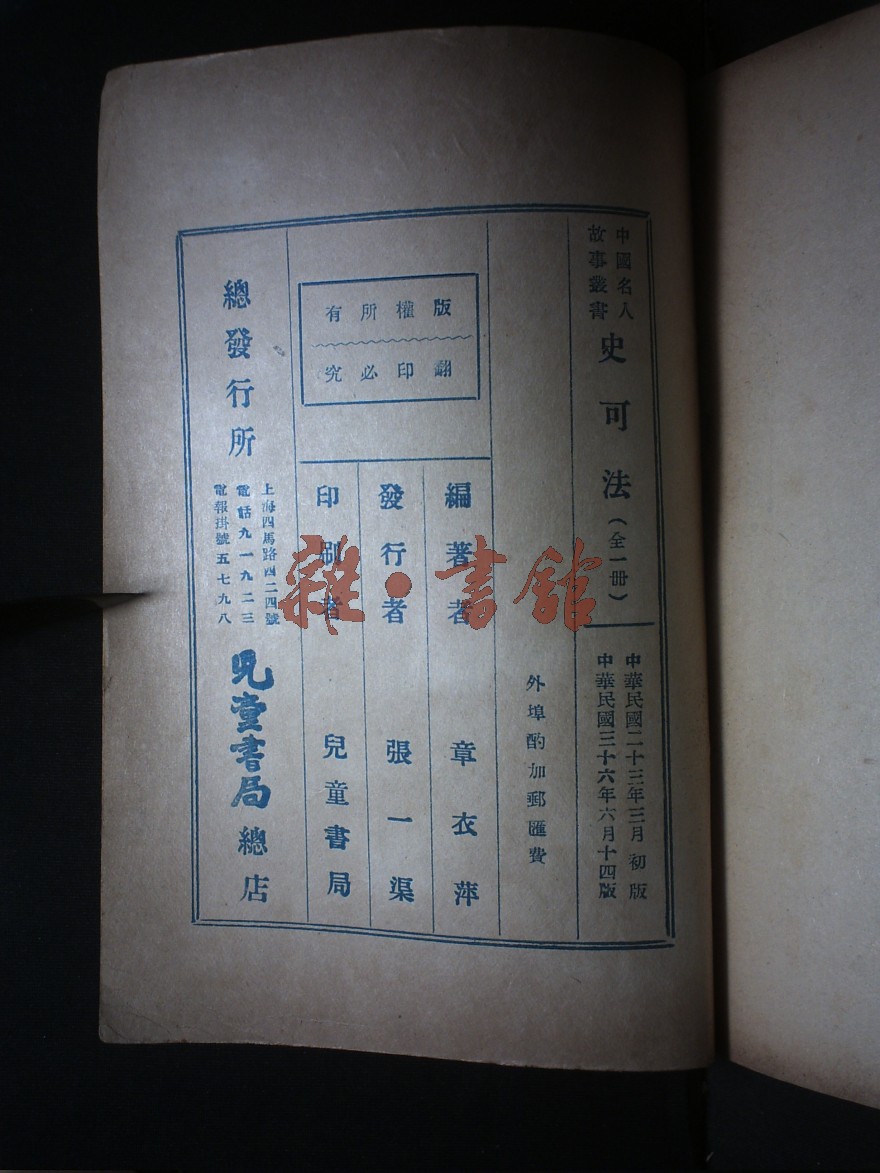 中國名人
故事叢書
史可法(全一册)
中華民國二十三年三月初版
中華民國三十六年六月十四版
外埠酌加郵匯費
版權所有
翻印必究
編著者 章衣萍
發行者 張一渠
印刷者 兒童書局
總發行所
上海四馬路四二四號
電話九一九二三
電報掛號五七九八
兒童書局總店
雜·書館